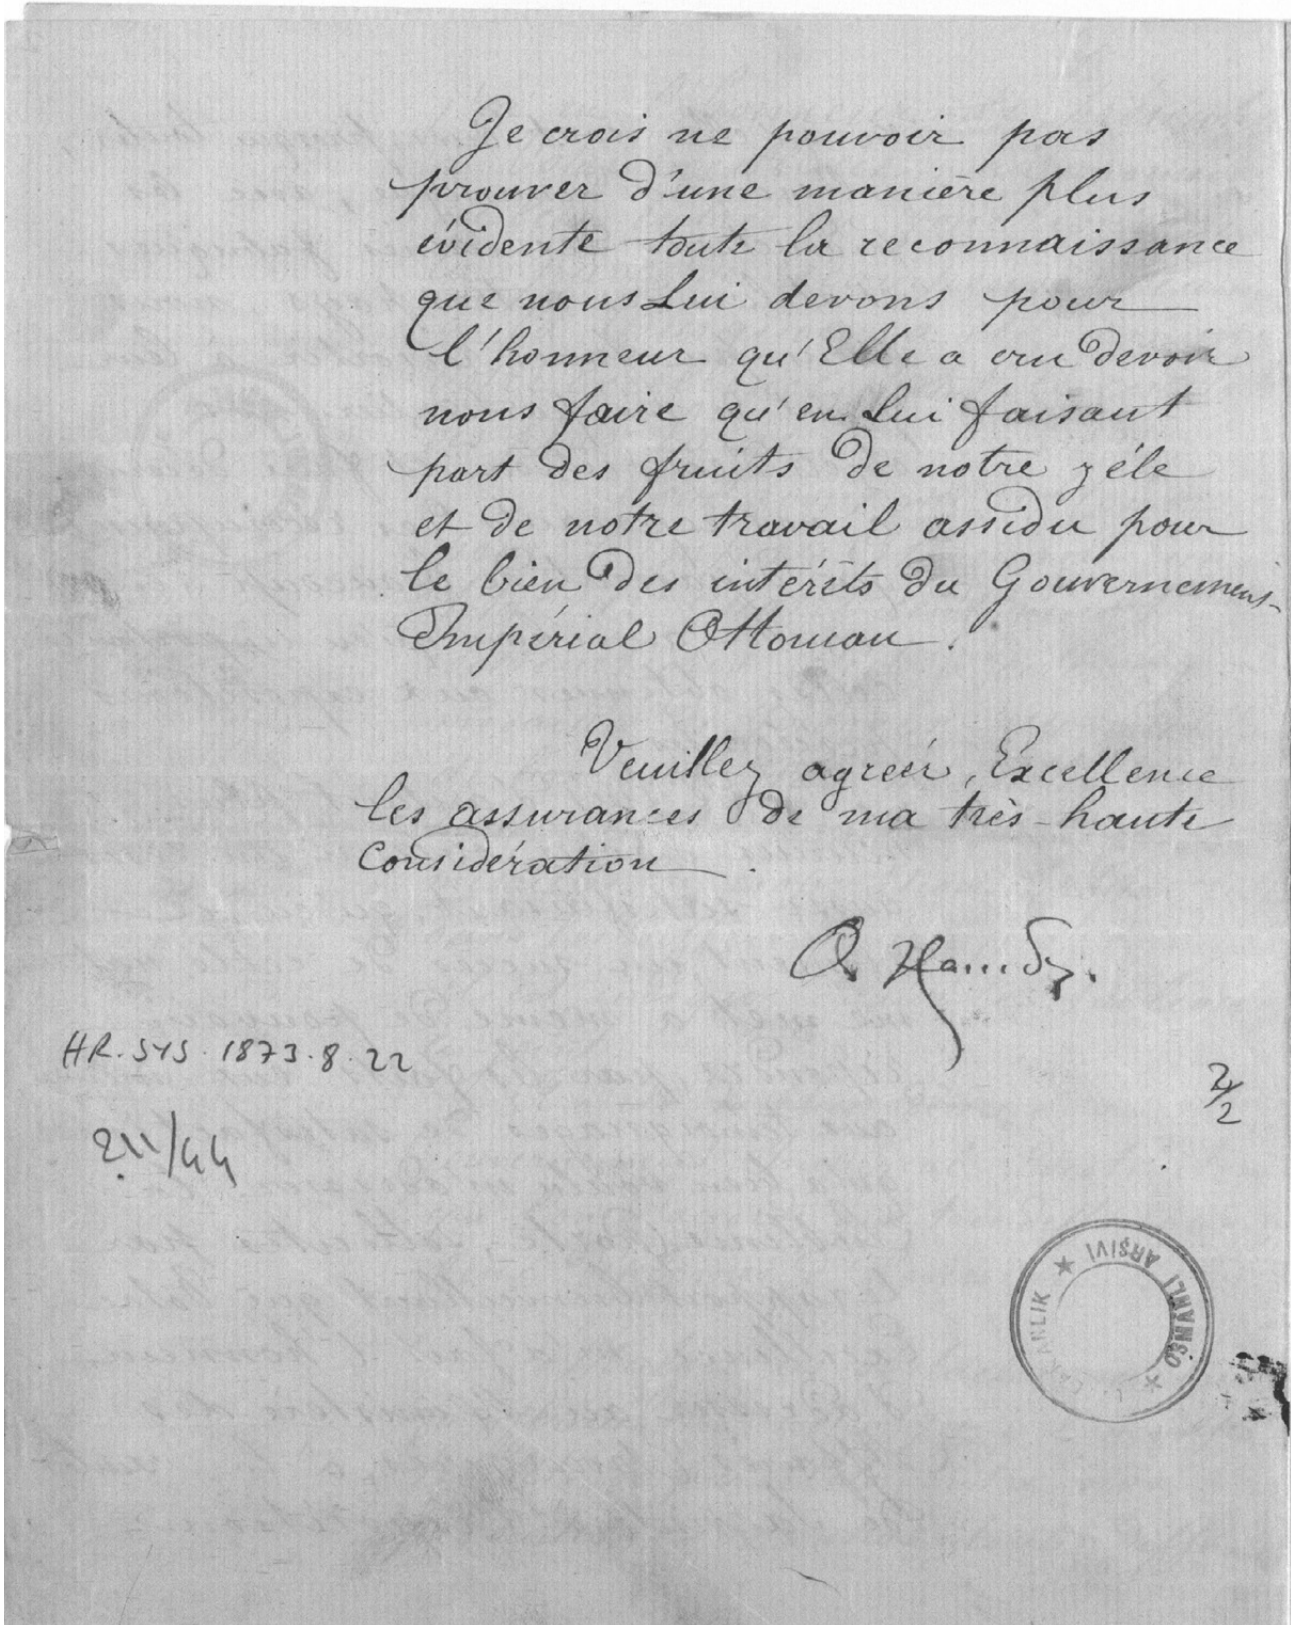 Je crois ne pouvoir pas
prouver d'une manière plus
évidente toute la reconnaissance
que nous Lui devons pour
l'honneur qu'Elle a cru devoir
nous faire qu'en Lui faisant
part des fruits de notre zéle
et de notre travail assidu pour
le bien des intérêts du Gouvernement
Impérial Ottoman.
Veuillez agréer, Excellence
les assurances de ma très-haute
Considération.
O. Hamdy.
HR. SYS. 1873.8.22
2/2
OSMANLI ARŞİVİ